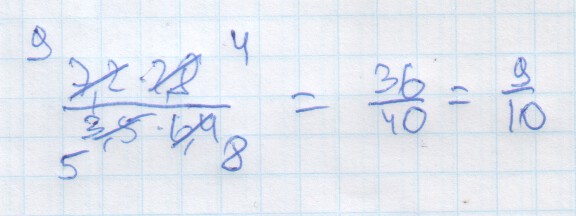 9 4
7,2 · 2,8
3,5 · 6,4
5 8
= 36/40 = 9/10